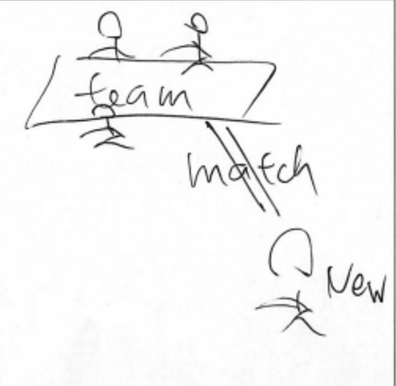 team
match
New